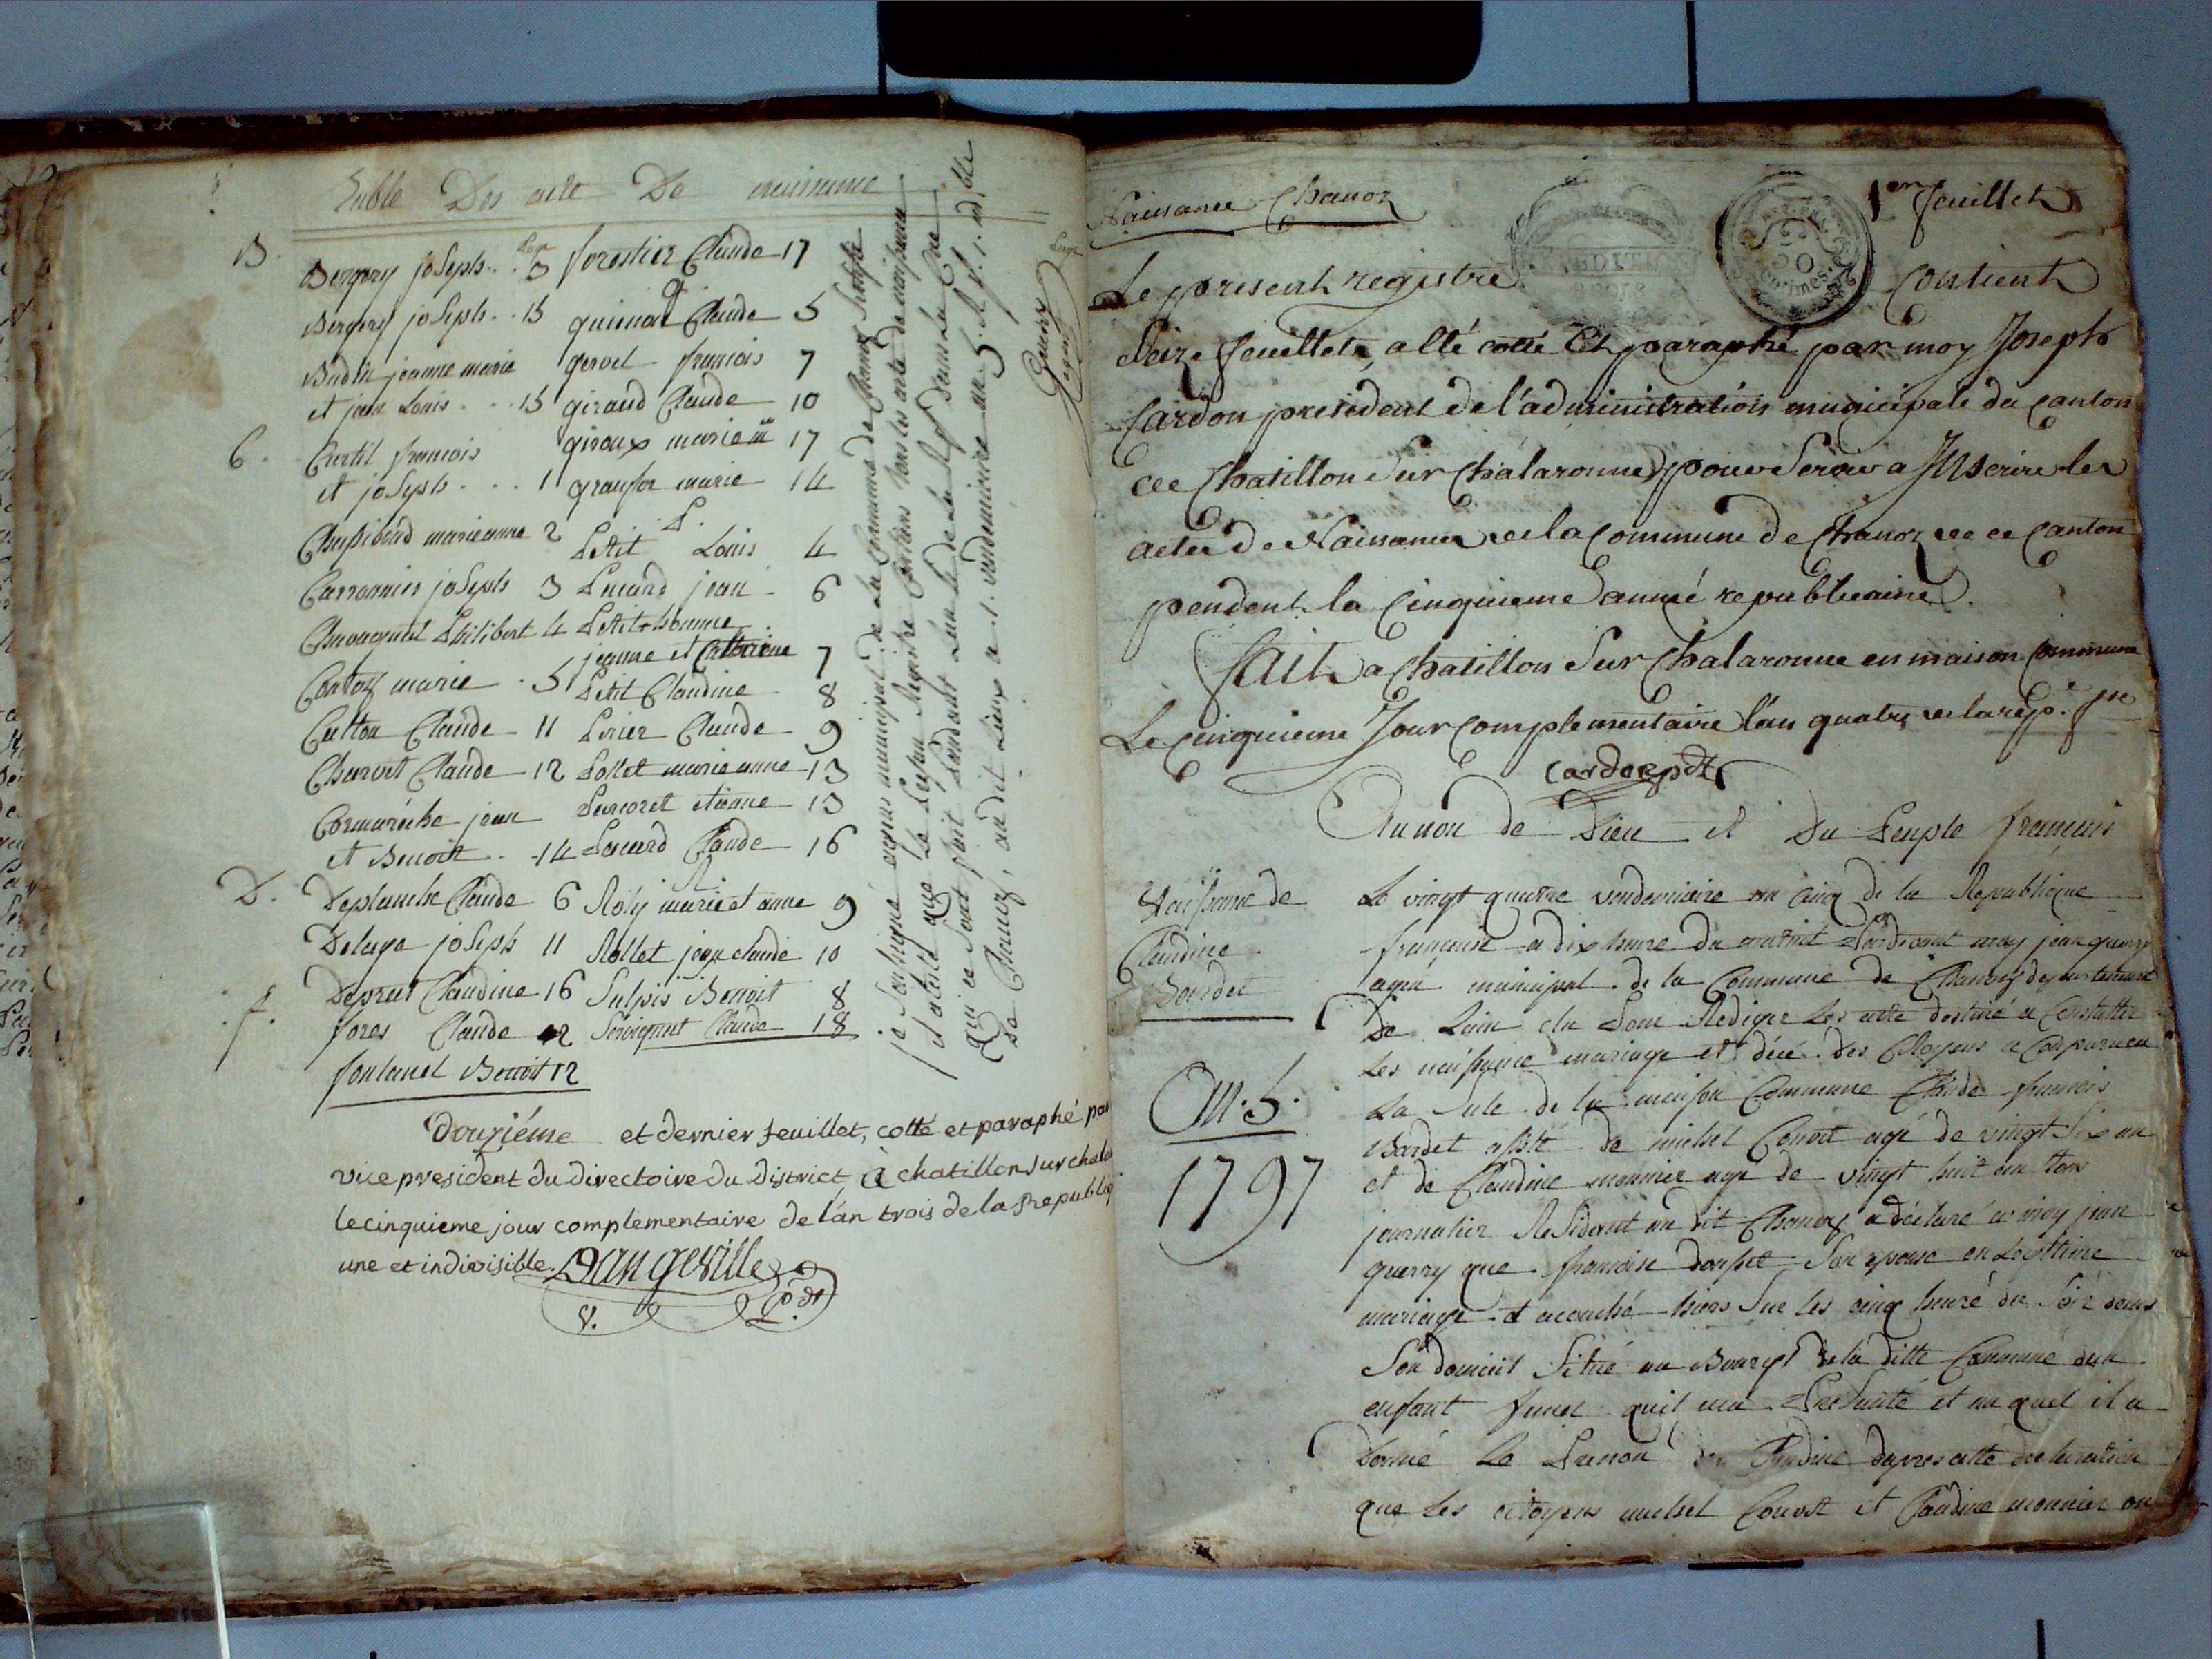 Table Des acte De naissance
B. Bergery joseph .. 3
Bergery joseph .. 15
Budin jeanne marie
et jean Louis ... 15
C. Curtil francois
et joseph ... 1
marianne 2
Carronnier joseph 3
Philibert 4
Contoz marie . 5
Cutton Claude - 11
Charvet Claude - 12
Cormareche jean
et Benoit .. 14
D. Deplanche Claude 6
Deluge joseph 11
Depret Claudine 16
f. fores Claude 12
fontanel Benoit 12
forestier Claude - 17
g
Claude 5
francois 7
giraud Claude - 10
giroux marie 17
marie 14
P.
Petit Louis 4
jean - 6
Petit-homme
jeanne et Catherine 7
Petit Claudine - 8
Perier Claude - 9
Pollet marie anne - 13
etienne - 13
Claude - 16
R
Roly marie et anne 9
Rollet jean claude 10
Sulpis Benoit 8
Claude - 18
je Soussigné agent municipal de la Commune de Chanoz Certifie
et ateste que le présent Registre Contiens tous les acte de naissance
qui ce sont fait pendant l'an 4e de la Rep. dans la Cne
De Chanoz, au dit lieux a 1. vendemiaire an 5 R. f. 1. indible
Guerry
agent
Douziéme et dernier feuillet, cotté et paraphé par
vice president du directoire du District, à chatillon sur chala
le cinquieme jour complementaire de l'an trois de la republiq
une et indivisible. Dangeville
v. pdt
Naissance Chanoz
1er feuillet
Le present registre contient
Seize feuillets, a été cotté Et paraphé par moy Joseph
Cardon president de l'administration municipale du canton
de Chatillon Sur Chalaronne, pour Servir a Inscrire les
actes de Naissances de la Commune de Chanoz de ce Canton
pendent la Cinquieme année republicaine.
fait a Chatillon Sur Chalaronne en maison Commune
Le Cinquieme Jour complementaire l'an quatre de la rep.e fse
Cardon pdt
Au nom de Dieu et Du Peuple francais
Naissance de
Claudine
Bardet
An. 5.
1797
Le vingt quatre vendemiaire an Cinq de la Republique
francaise a dix heure du matin Pardevant moy jean guerry
agent municipal de la Commune de Chanoz departement
De Lain elu Pour Rediger Les acte destiné a Constatter
Les naissance mariage et décé Des Citoyens a Comparu en
La Sale de la maison Commune Claude francois
Bardet assisté de michel Conort agé de vingt Six an
et de Claudine monnier age de vingt huit an tous
journalier Residant au dit Chanoz a déclaré a moy jean
guerry que francoise Son epouse en Legitime
mariage et acouché hiers Sur Les cinq heuré du Soir dans
Son domicil Situé au Bourg de la ditte Commune dun
enfant fumel quil ma Presenté et au quel il a
donné Le Prenom de Claudine dapres cette declaration
que Les citoyens michel Conort et Claudine monnier on